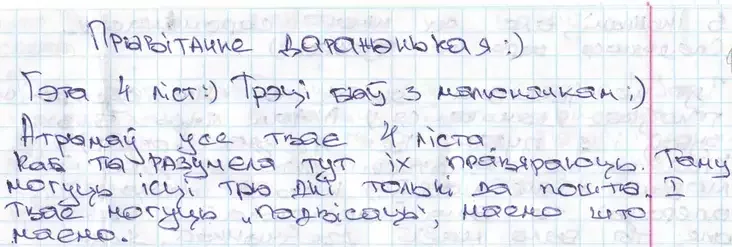 Прывітанне даражэнькая:)
Гэта 4 ліст:) Трэці быў з малюначкам;)
Атрымаў усе твае 4 ліста.
Каб ты разумела тут іх правяраюць. Таму
могуць ісці тры дні толькі да пошты. І
твае могуць "падвісаць", маемо што
маемо.